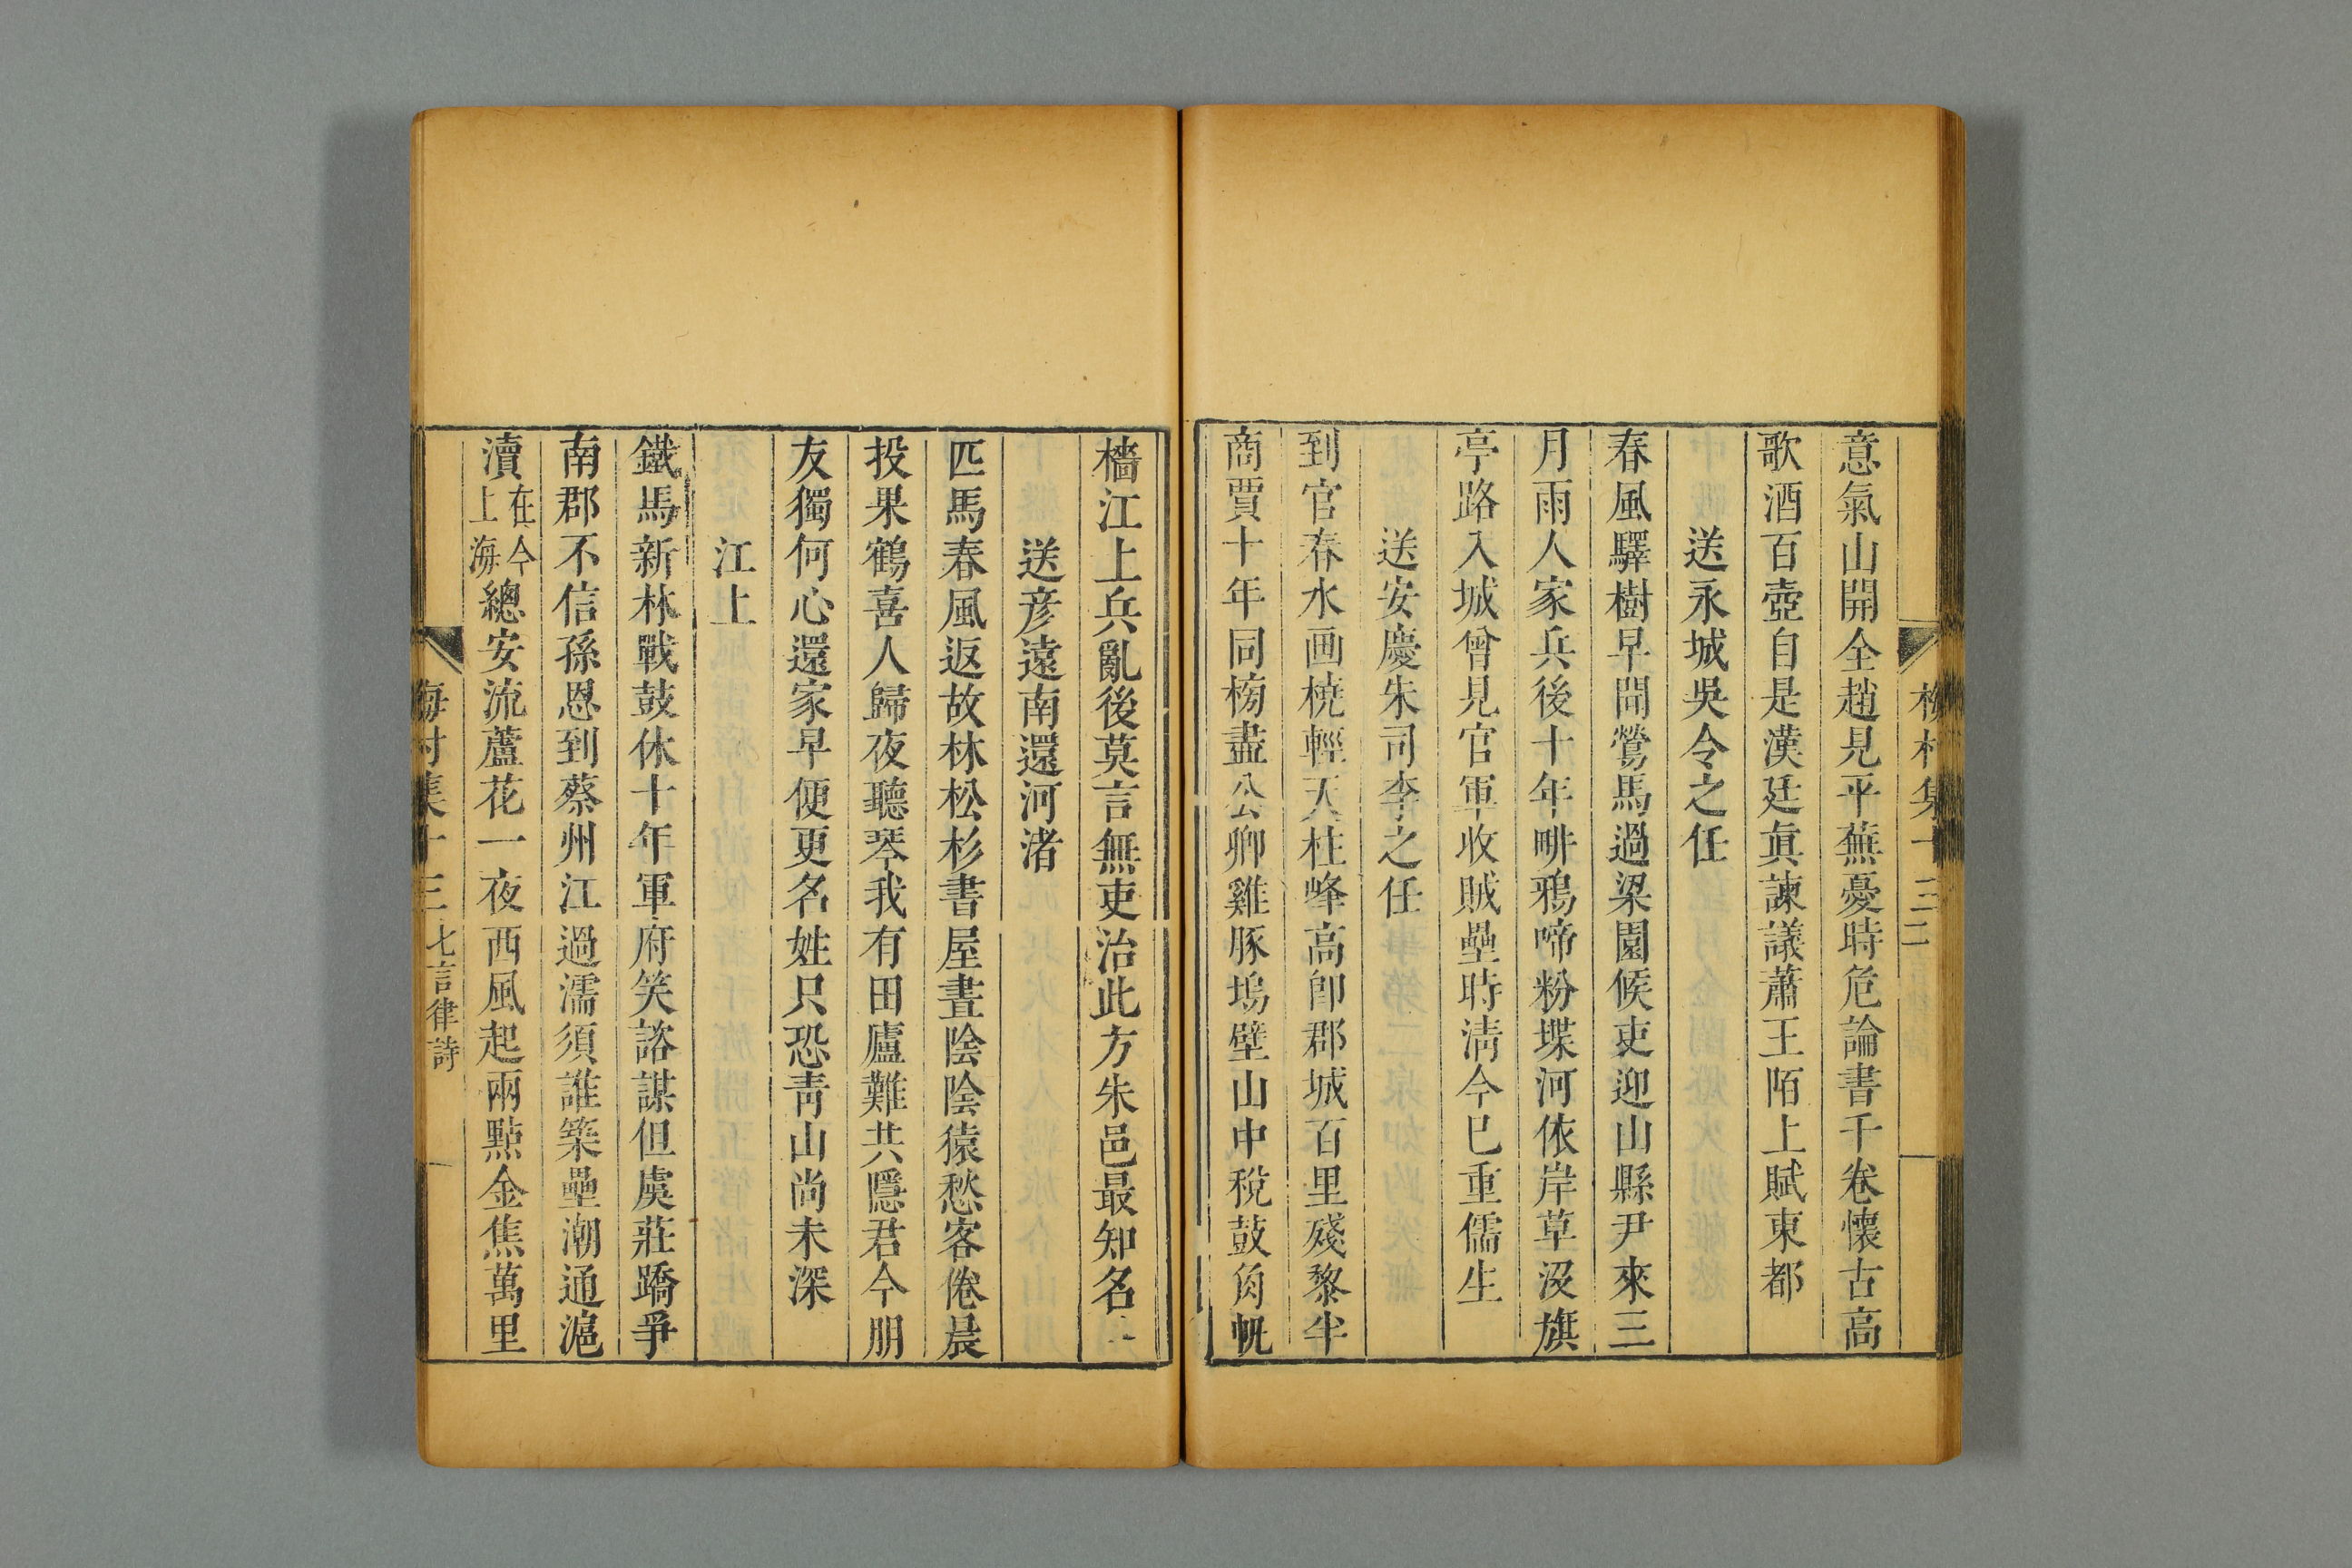 梅村集十三 二
意氣山開全趙見平蕪憂時危論書千卷懷古高
歌酒百壺自是漢廷眞諫議蕭王陌上賦東都
送永城吳令之任
春風驛樹早聞鶯馬過梁園候吏迎山縣尹來三
月雨人家兵後十年畊鴉啼粉堞河依岸草沒旗
亭路入城曾見官軍收賊壘時淸今已重儒生
送安慶朱司李之任
到官春水画橈輕天柱峰高郎郡城百里殘黎半
商賈十年同榜盡公卿雞豚塢壁山中稅鼓角帆
檣江上兵亂後莫言無吏治此方朱邑最知名
送彦遠南還河渚
匹馬春風返故林松杉書屋晝陰陰猿愁客倦晨
投果鶴喜人歸夜聽琴我有田廬難共隱君今朋
友獨何心還家早便更名姓只恐靑山尚未深
江上
鐵馬新林戰鼓休十年軍府笑諮謀但虞莊蹻爭
南郡不信孫恩到蔡州江過濡須誰築壘潮通滬
瀆在今上海總安流蘆花一夜西風起兩點金焦萬里
梅村集十三 七言律詩